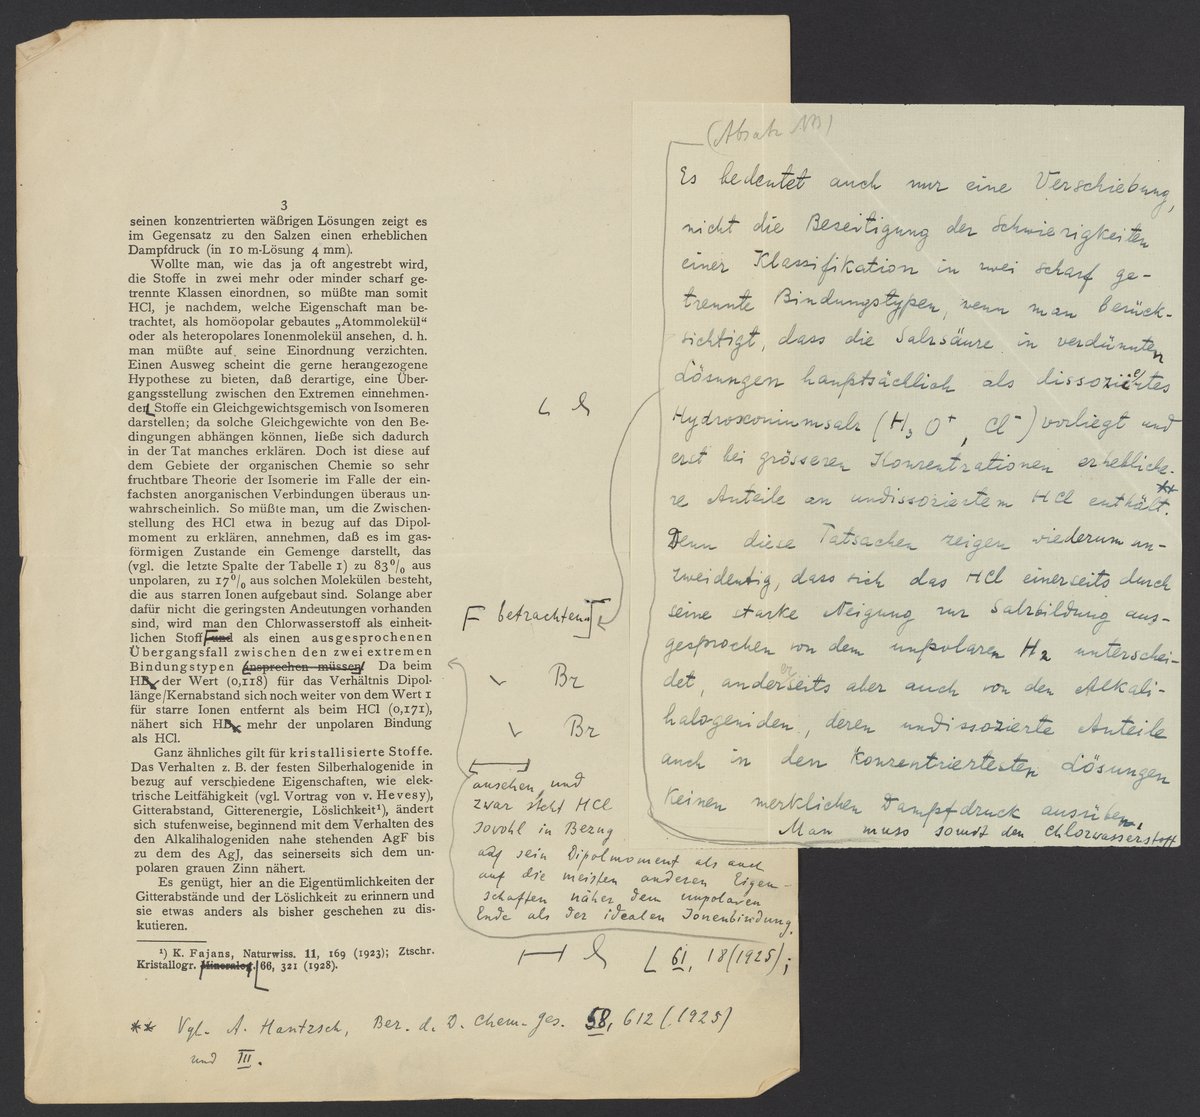 3
seinen konzentrierten wäßrigen Lösungen zeigt es
im Gegensatz zu den Salzen einen erheblichen
Dampfdruck (in 10 m-Lösung 4 mm).
Wollte man, wie das ja oft angestrebt wird,
die Stoffe in zwei mehr oder minder scharf ge-
trennte Klassen einordnen, so müßte man somit
HCl, je nachdem, welche Eigenschaft man be-
trachtet, als homöopolar gebautes „Atommolekül“
oder als heteropolares Ionenmolekül ansehen, d. h.
man müßte auf seine Einordnung verzichten.
Einen Ausweg scheint die gerne herangezogene
Hypothese zu bieten, daß derartige, eine Über-
gangsstellung zwischen den Extremen einnehmen-
der Stoffe ein Gleichgewichtsgemisch von Isomeren
darstellen; da solche Gleichgewichte von den Be-
dingungen abhängen können, ließe sich dadurch
in der Tat manches erklären. Doch ist diese auf
dem Gebiete der organischen Chemie so sehr
fruchtbare Theorie der Isomerie im Falle der ein-
fachsten anorganischen Verbindungen überaus un-
wahrscheinlich. So müßte man, um die Zwischen-
stellung des HCl etwa in bezug auf das Dipol-
moment zu erklären, annehmen, daß es im gas-
förmigen Zustande ein Gemenge darstellt, das
(vgl. die letzte Spalte der Tabelle 1) zu 83% aus
unpolaren, zu 17% aus solchen Molekülen besteht,
die aus starren Ionen aufgebaut sind. Solange aber
dafür nicht die geringsten Andeutungen vorhanden
sind, wird man den Chlorwasserstoff als einheit-
lichen Stoff und als einen ausgesprochenen
Übergangsfall zwischen den zwei extremen
Bindungstypen ansprechen müssen. Da beim
HBr der Wert (0,118) für das Verhältnis Dipol-
länge/Kernabstand sich noch weiter von dem Wert 1
für starre Ionen entfernt als beim HCl (0,171),
nähert sich HBr mehr der unpolaren Bindung
als HCl.
Ganz ähnliches gilt für kristallisierte Stoffe.
Das Verhalten z. B. der festen Silberhalogenide in
bezug auf verschiedene Eigenschaften, wie elek-
trische Leitfähigkeit (vgl. Vortrag von v. Hevesy),
Gitterabstand, Gitterenergie, Löslichkeit¹), ändert
sich stufenweise, beginnend mit dem Verhalten des
den Alkalihalogeniden nahe stehenden AgF bis
zu dem des AgJ, das seinerseits sich dem un-
polaren grauen Zinn nähert.
Es genügt, hier an die Eigentümlichkeiten der
Gitterabstände und der Löslichkeit zu erinnern und
sie etwas anders als bisher geschehen zu dis-
kutieren.
¹) K. Fajans, Naturwiss. 11, 169 (1923); Ztschr.
Kristallogr. Mineralog. 66, 321 (1928).
betrachten
Br
Br
ansehen, und
zwar steht HCl
sowohl in Bezug
auf sein Dipolmoment als auch
auf die meisten anderen Eigen-
schaften näher dem unpolaren
Ende als der idealen Ionenbindung.
61, 18 (1925);
** Vgl. A. Hantzsch, Ber. d. D. Chem. Ges. 58, 612 (1925)
und III.
(Absatz
Es bedeutet auch nur eine Verschiebung,
nicht die Beseitigung der Schwierigkeiten
einer Klassifikation in zwei scharf ge-
trennte Bindungstypen, wenn man berück-
sichtigt, dass die Salzsäure in verdünnten
Lösungen hauptsächlich als dissoziiertes
Hydroxoniumsalz (H₃O⁺, Cl⁻) vorliegt und
erst bei grösseren Konzentrationen erhebliche-
re Anteile an undissoziiertem HCl enthält.**
Denn diese Tatsachen zeigen wiederum un-
zweideutig, dass sich das HCl einerseits durch
seine starke Neigung zur Salzbildung aus-
gesprochen von dem unpolaren H₂ unterschei-
det, anderseits aber auch von den Alkali-
halogeniden, deren undissozierte Anteile
auch in den konzentriertesten Lösungen
keinen merklichen Dampfdruck ausüben.
Man muss somit den Chlorwasserstoff